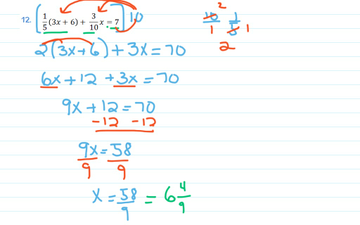 12. [1/5(3x + 6) + 3/10 x = 7] 10
10/1 · 1/5
2 1
2
2(3x+6) + 3x = 70
6x + 12 + 3x = 70
9x + 12 = 70
-12 -12
9x = 58
9 9
x = 58/9 = 6 4/9